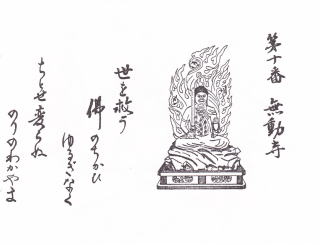 第十番 無動寺
世を救う
佛のちかひ
ゆるぎなく
ちとせ変らぬ
のりのわかやま